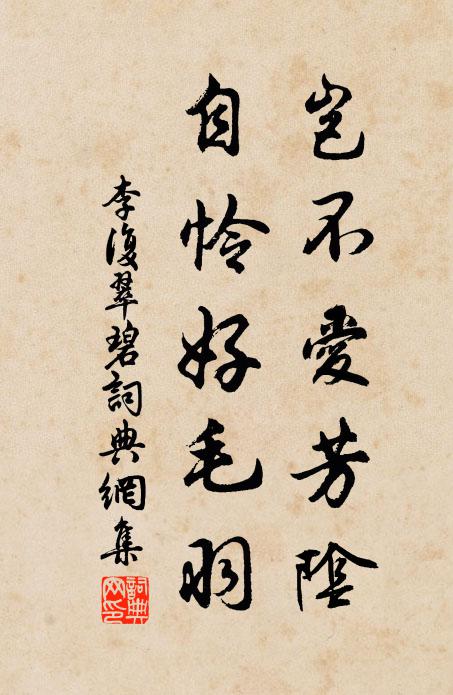 豈不愛芳陰
自怜好毛羽
李復翠碧詞典網集
詞典網印